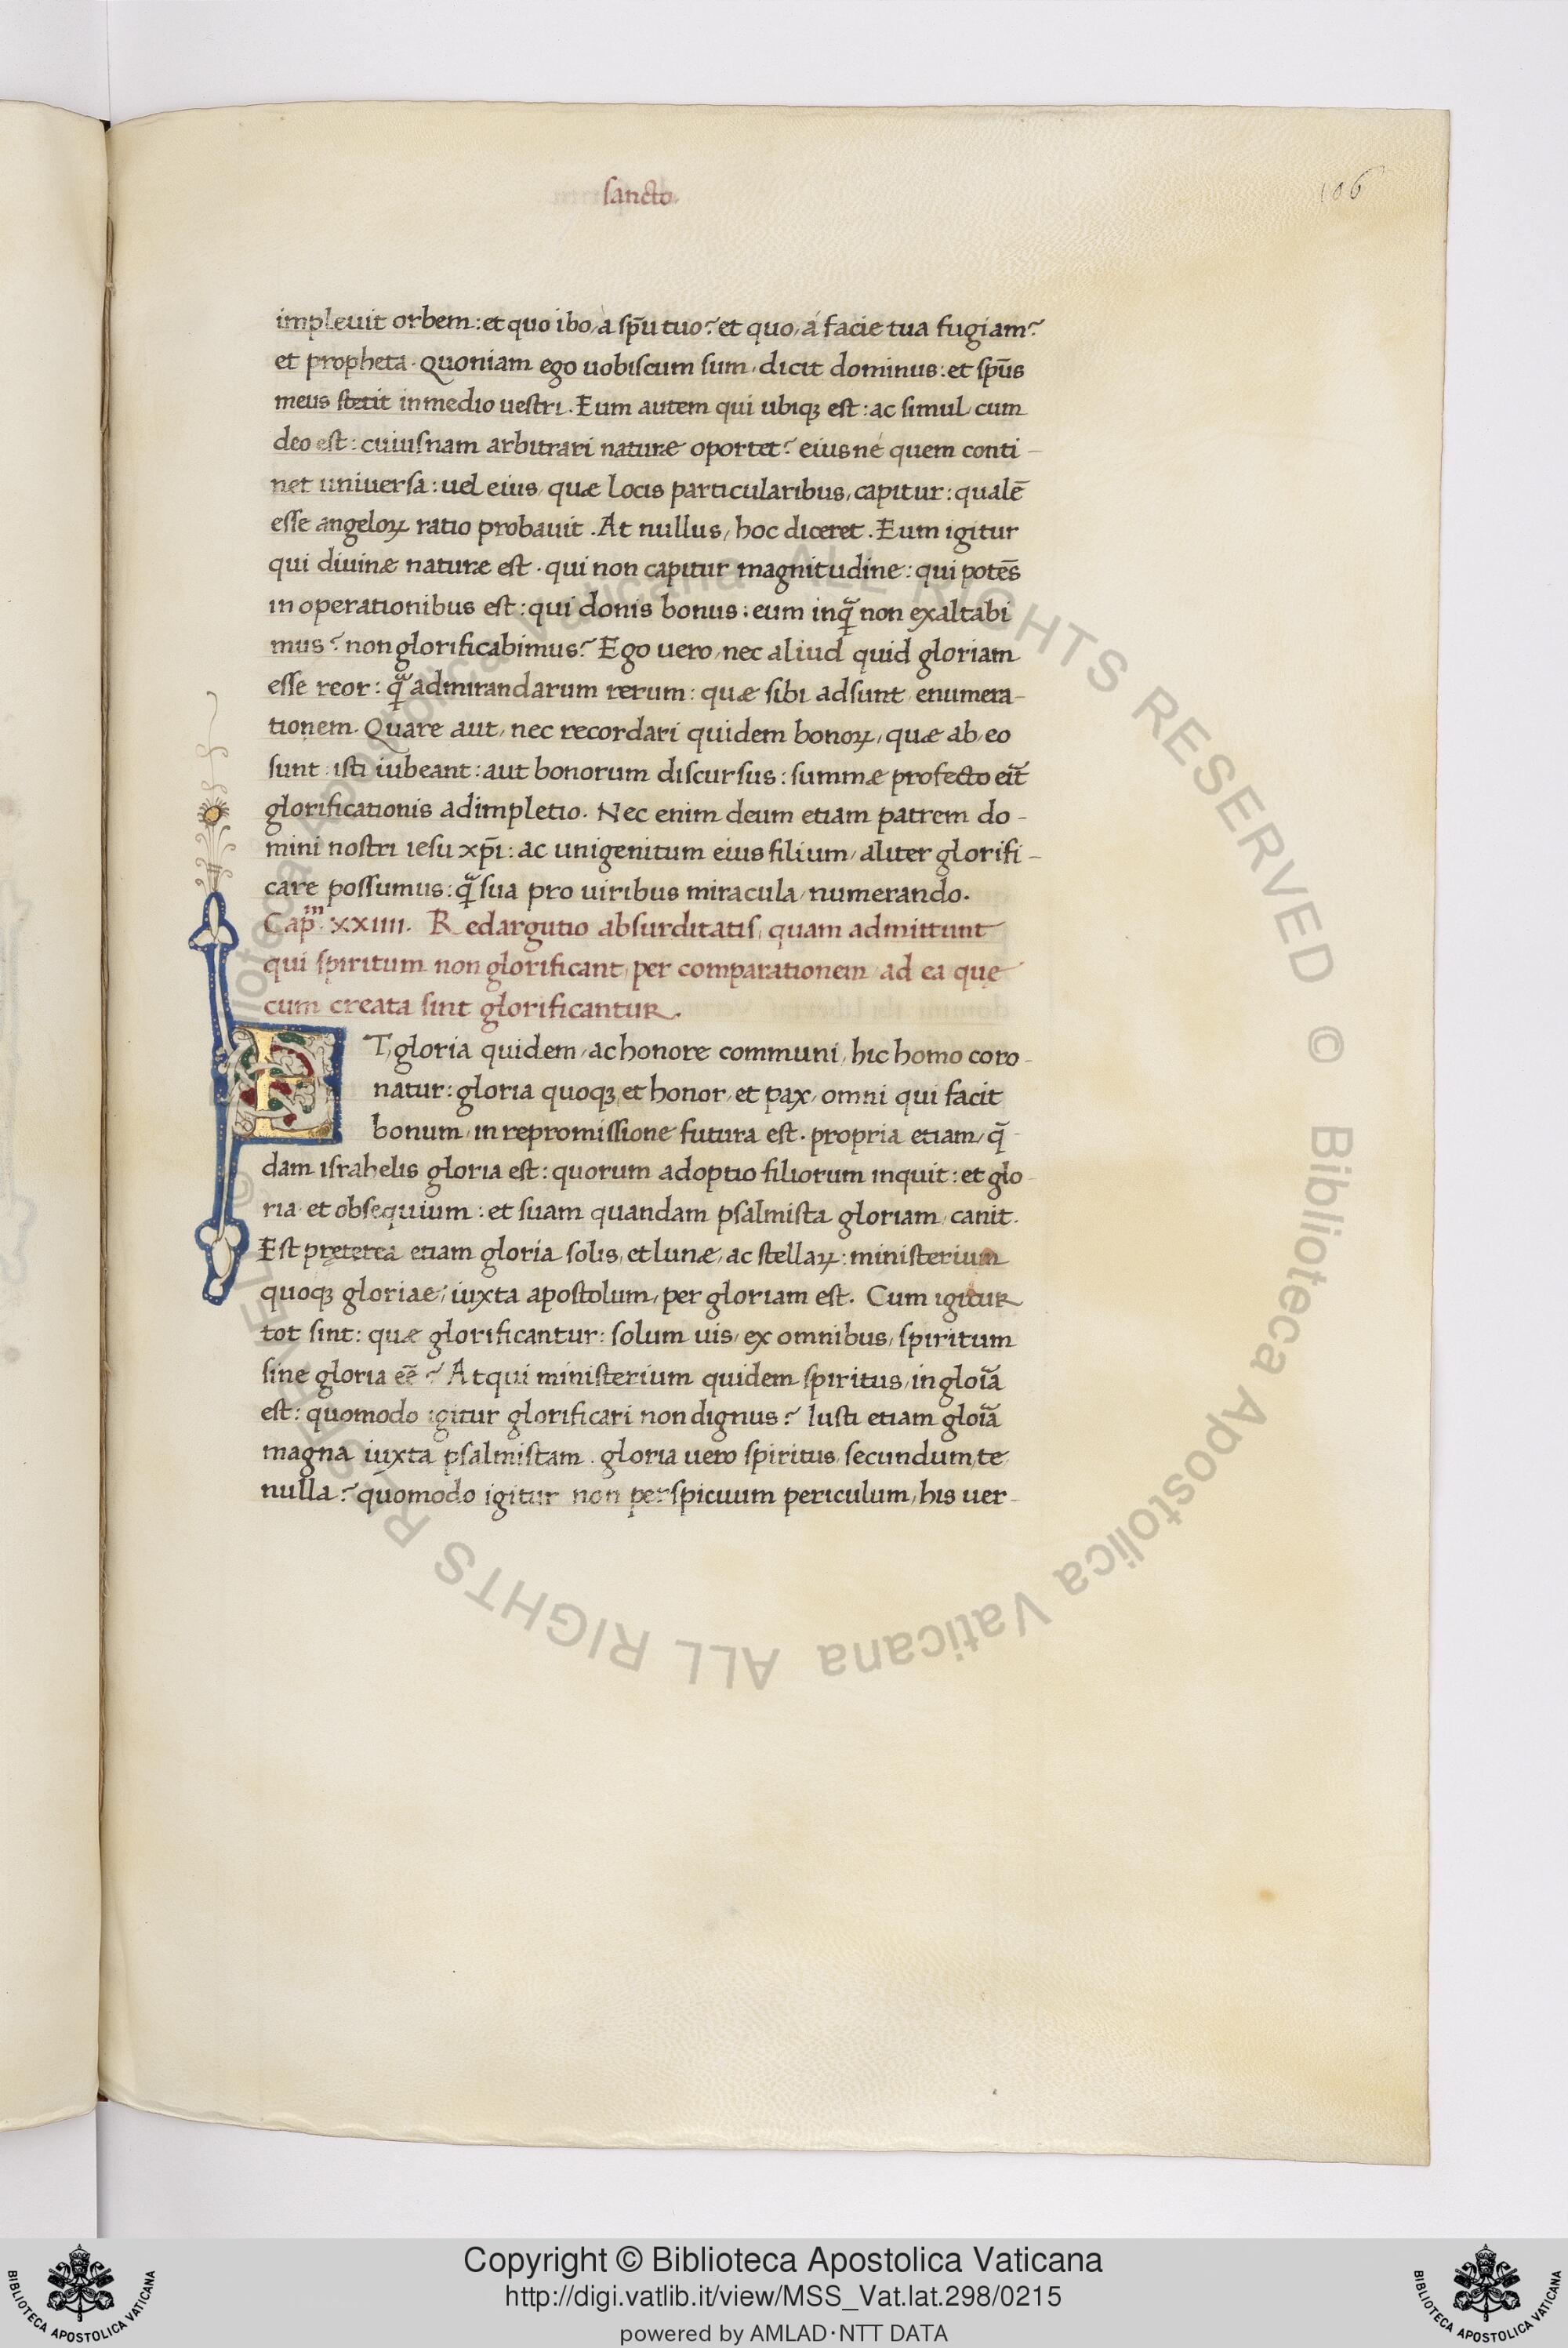 sancto.
106
impleuit orbem: et quo ibo, a sp̄u tuo? et quo, á facie tua fugiam?
et propheta. Quoniam ego uobiscum sum, dicit dominus: et sp̄us
meus stetit in medio uestri. Eum autem qui ubiqꝫ est: ac simul cum
deo est: cuiusnam arbitrari naturæ oportet? eius né quem conti-
net uniuersa: uel eius, quæ locis particularibus, capitur: qualē
esse angeloꝝ ratio probauit. At nullus, hoc diceret. Eum igitur
qui diuinæ naturæ est. qui non capitur magnitudine: qui potēs
in operationibus est: qui donis bonus: eum inq̃ non exaltabi
mus? non glorificabimus? Ego uero, nec aliud quid gloriam
esse reor: q̃ admirandarum rerum: quæ sibi adsunt, enumera-
tionem. Quare aut, nec recordari quidem bonoꝝ, quæ ab eo
sunt isti iubeant: aut bonorum discursus: summæ profecto eit̄
glorificationis adimpletio. Nec enim deum etiam patrem do-
mini nostri iesu xp̄i: ac unigenitum eius filium, aliter glorifi-
care possumus: q̃ sua pro uiribus miracula, numerando.
Cap.ᵐ XXIIII. Redargutio absurditatis, quam admittunt
qui spiritum non glorificant, per comparationem ad ea que
cum creata sint glorificantur.
ET, gloria quidem, ac honore communi, hic homo coro-
natur: gloria quoqꝫ et honor, et pax, omni qui facit
bonum, in repromissione futura est. propria etiam, q̄-
dam israhelis gloria est: quorum adoptio filiorum inquit: et glo-
ria et obsequium: et suam quandam psalmista gloriam, canit.
Est pręterea etiam gloria solis, et lunæ, ac stellaꝝ: ministerium
quoqꝫ gloriae, iuxta apostolum, per gloriam est. Cum igitur
tot sint: quæ glorificantur: solum uis, ex omnibus, spiritum
sine gloria eē? Atqui ministerium quidem spiritus, in gloīa
est: quomodo igitur glorificari non dignus? Iusti etiam gloīa
magna iuxta psalmistam. gloria uero spiritus, secundum te
nulla? quomodo igitur non perspicuum periculum, his uer-
© Biblioteca Apostolica Vaticana ALL RIGHTS RESERVED © Biblioteca Apostolica Vaticana ALL RIGHTS RESERVED
BIBLIOTECA APOSTOLICA VATICANA
Copyright © Biblioteca Apostolica Vaticana
http://digi.vatlib.it/view/MSS_Vat.lat.298/0215
powered by AMLAD·NTT DATA
BIBLIOTECA APOSTOLICA VATICANA